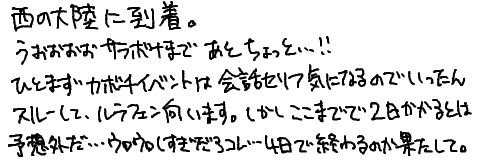 西の大陸に到着。
うおおおお サラボナまで あとちょっと…!!
ひとまずカボチイベントは会話セリフ気になるのでいったん
スルーして、ルラフェン向います。しかしここまでで2日かかるとは
予想外だ…ウロウロしすぎだろコレ…4日で終わるのか果たして。